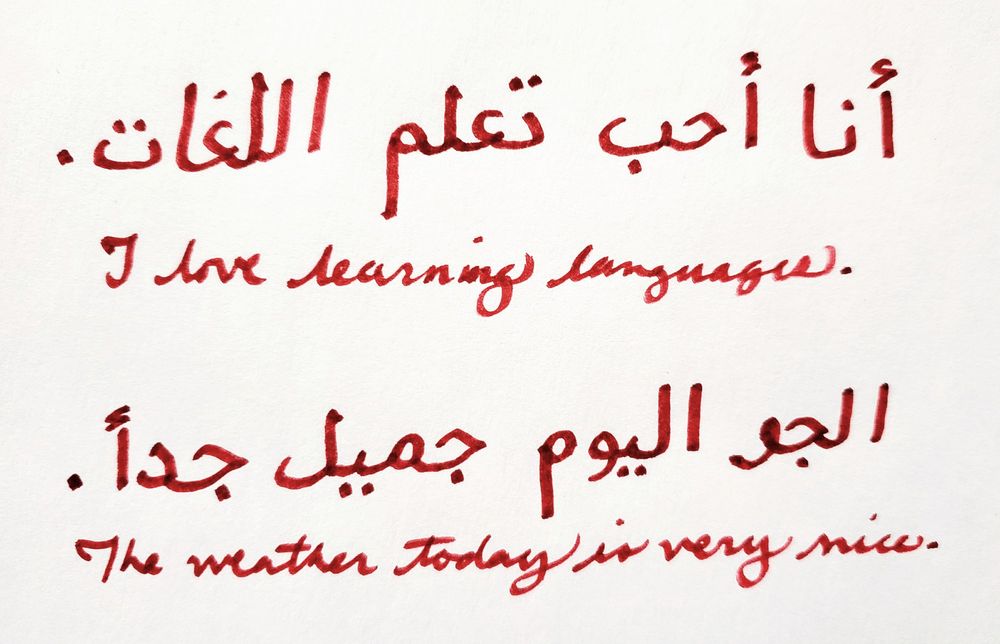 أنا أحب تعلم اللغات.
I love learning languages.
الجو اليوم جميل جدأ.
The weather today is very nice.